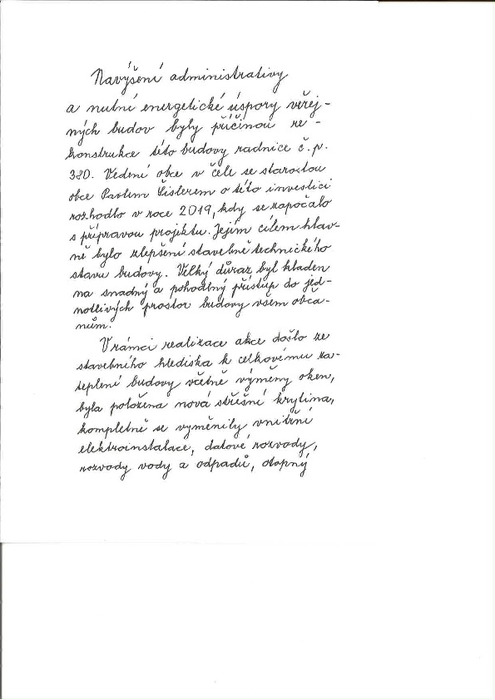 Navýšení administrativy
a nutné energetické úspory veřej-
ných budov byly příčinou re-
konstrukce této budovy radnice č.p.
320. Vedení obce v čele se starostou
obce Pavlem Čislerem o této investici
rozhodlo v roce 2019, kdy se započalo
s přípravou projektu. Jejím cílem hlav-
ně bylo zlepšení stavebně technického
stavu budovy. Velký důraz byl kladen
na snadný a pohodlný přístup do jed-
notlivých prostor budovy všem obča-
nům.
V rámci realizace akce došlo ze
stavebního hlediska k celkovému za-
teplení budovy včetně výměny oken,
byla položena nová střešní krytina,
kompletně se vyměnily vnitřní
elektroinstalace, datové rozvody,
rozvody vody a odpadů, otopný